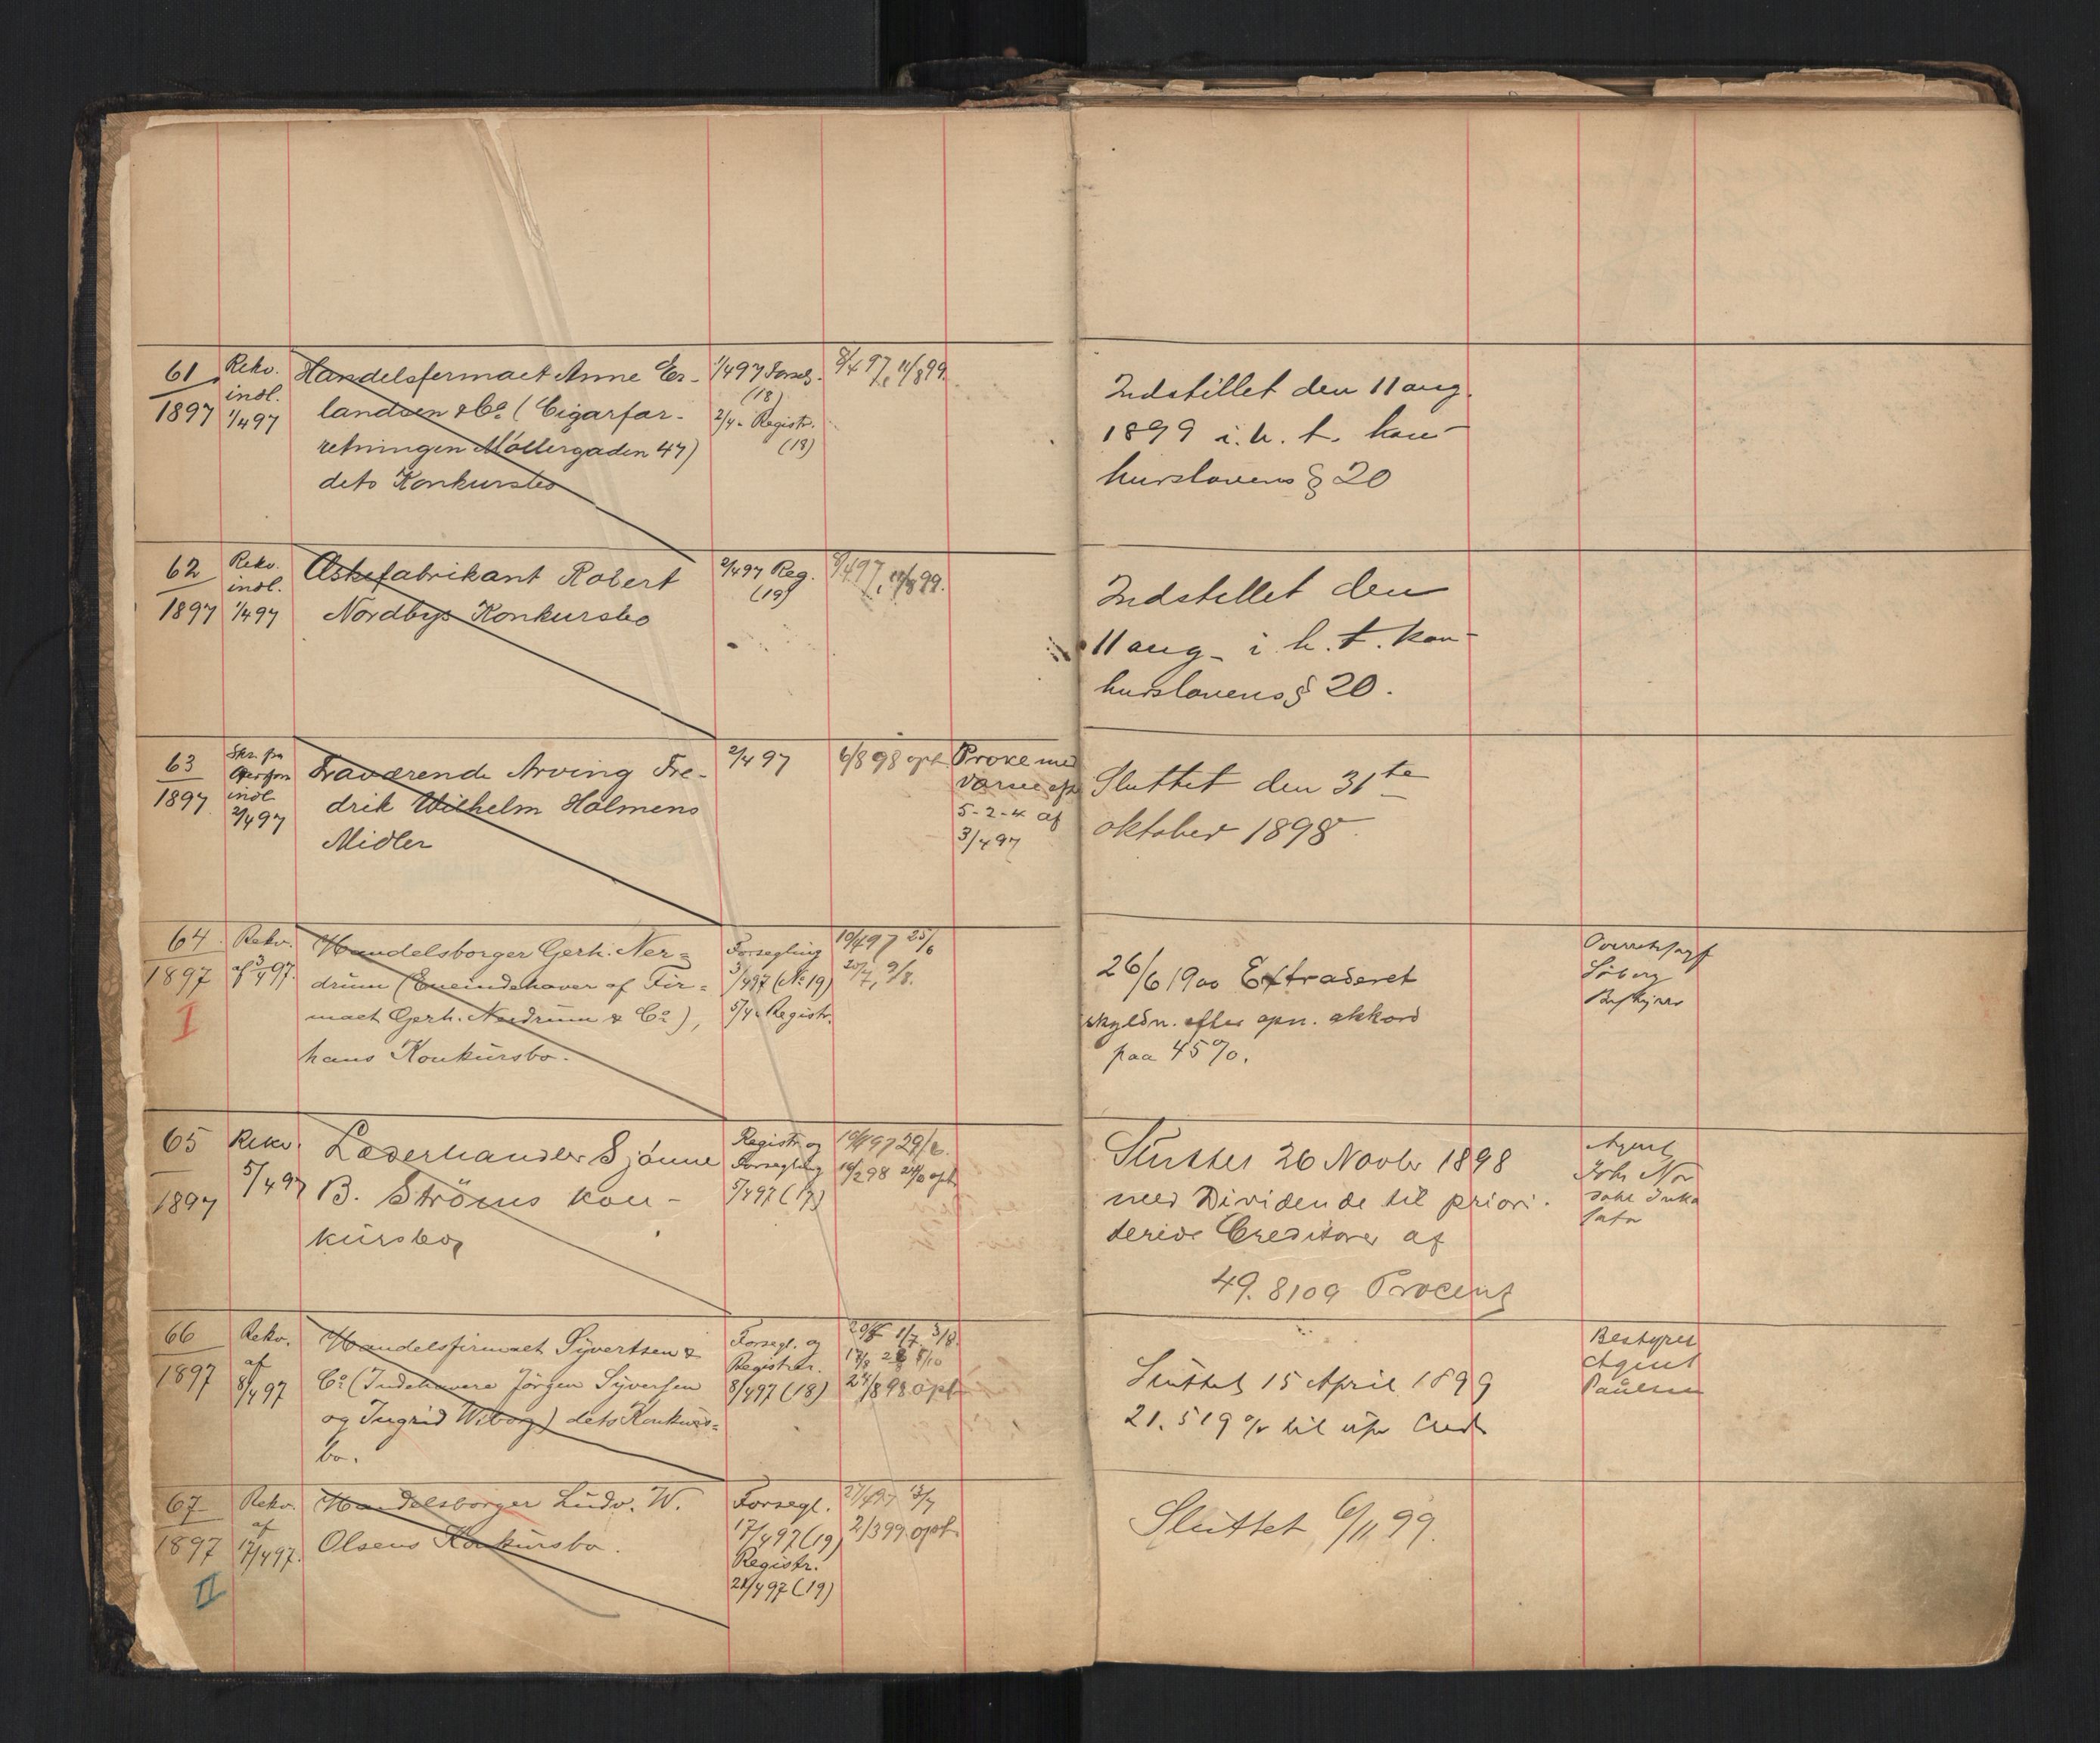 61
1897
Rekv.
indl.
1/4 97
Handelsfirmaet Anne Er-
landsen & Co (Cigarfor-
retningen Möllergaden 47)
dets Konkursbo
1/4 97 Forseg.
(18)
2/4 - Registr.
(18)
8/4 97, 11/8 99.
Indstillet den 11 aug.
1899 i.h.t. kon-
kurslovens § 20
62
1897
Rekv.
indl.
1/4 97
Æskefabrikant Robert
Nordbys Konkursbo
2/4 97 Reg.
(19)
8/4 97, 11/8 99.
Indstillet den
11 aug - i.h.t. kon-
kurslovens § 20.
63
1897
Skr. fra
indl
2/4 97
Fraværende Arving Fre-
drik Wilhelm Holmens
Midler
2/4 97
6/8 98 opt.
Prove med
5-2-4 af
3/4 97
Sluttet den 31te
oktober 1898
64
1897
I
Rekv.
af 3/4 97.
Handelsborger Gerh. Ner-
drum (Eneindehaver af Fir-
maet Gerh. Nerdrum & Co),
hans Konkursbo.
Forsegling
3/4 97 (No 19)
5/4 - Registr.
10/4 97 25/6
20/7, 9/8.
26/6 1900 Extraderet
skyldn. efter opn. akkord
paa 45%.
Overretssagf
Söberg
Bestyrer
65
1897
Rekv.
5/4 97
Læderhandler Sjönne
B. Ströms kon-
kursbo,
Registr. og
Forsegling
5/4 97 (17)
10/4 97 29/6.
16/2 98 opt.
Sluttet 26 Novbr 1898
med Dividende til priori-
terede Creditorer af
49.8109 Procent
Agent
Johs Nor
dahl Inka
sato
66
1897
Rekv.
af
8/4 97
Handelsfirmaet Syvertsen &
Co (Indehavere Jörgen Syversen
og Ingrid Wiborg) dets Konkurs-
bo.
Forsegl. og
Registrer.
8/4 97 (18)
1/7 3/8.
24/8 98 opt.
Sluttet 15 April 1899
21.519 % til upr Cred
Bestyrer
Agent
Paulsen
67
1897
II
Rekv.
af
17/4 97.
Handelsborger Ludv. W.
Olsens Konkursbo.
Forsegl.
17/4 97 (19)
Registr.
21/4 97 (19)
27/4 97 13/7
2/3 99 opt.
Sluttet 6/11 99.